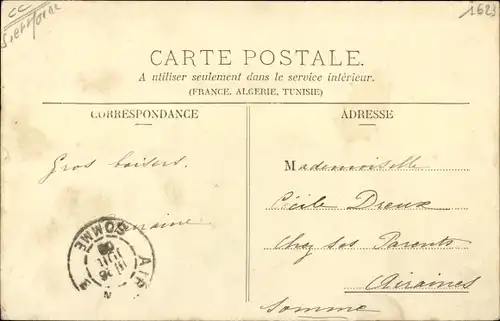 CC
1623
CARTE POSTALE.
A utiliser seulement dans le service intérieur.
(FRANCE, ALGERIE, TUNISIE)
CORRESPONDANCE
ADRESSE
Gros baisers.
Mademoiselle
Cécile Dreux
Chez ses Parents
Airaines
Somme
SOMME